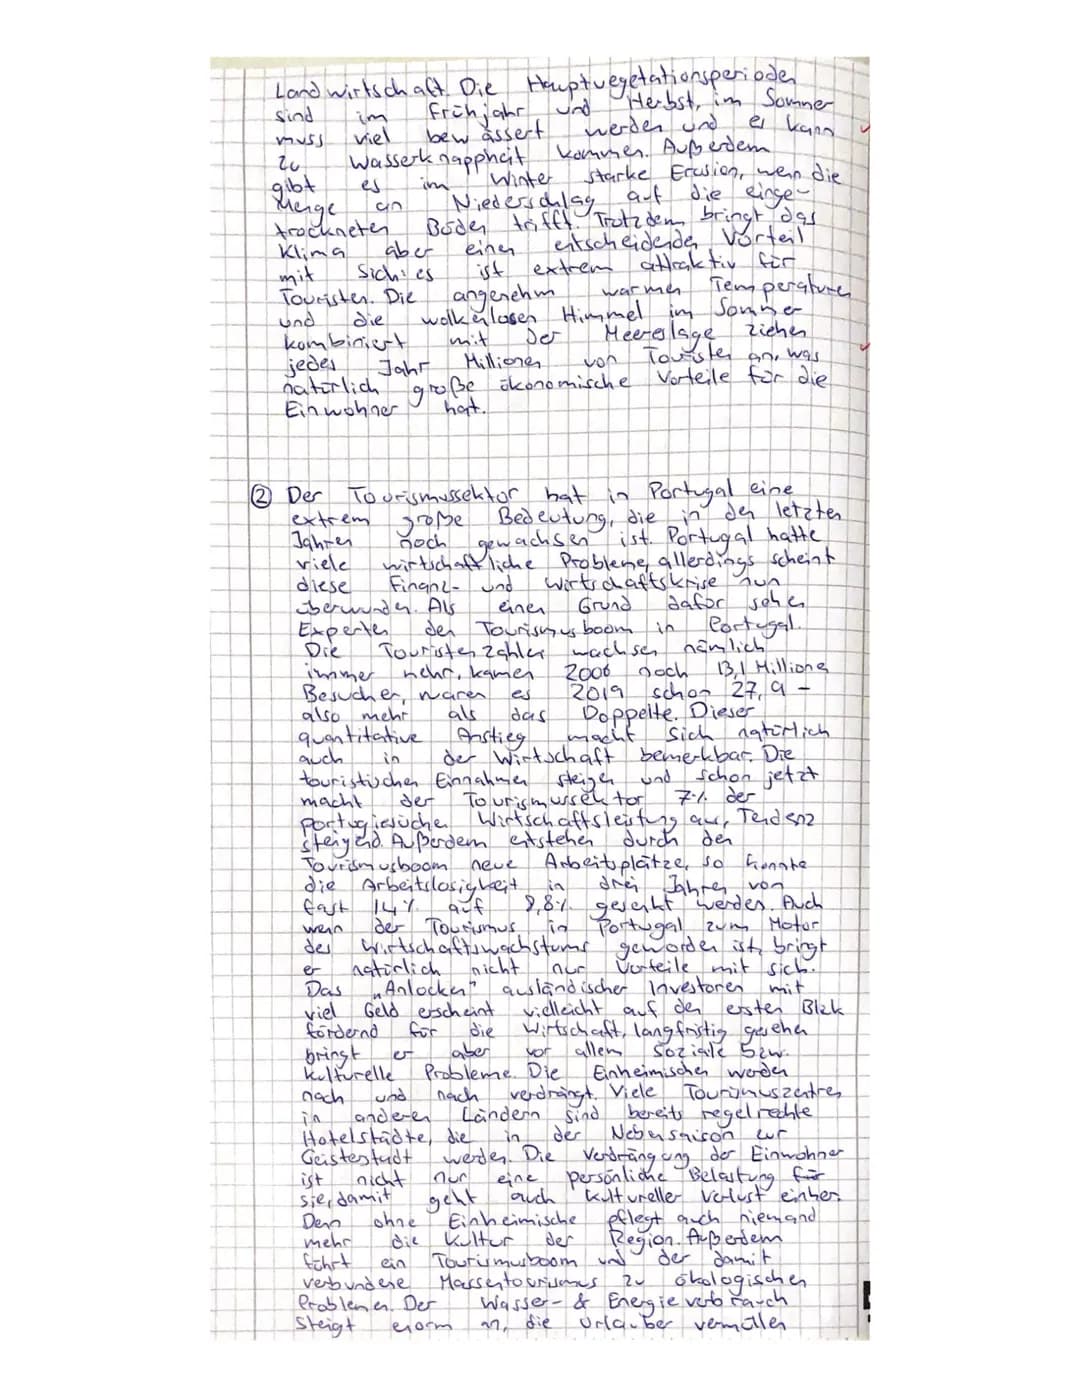 Landwirtschaft. Die Hauptvegetationsperioden
sind im Frühjahr und Herbst, im Sommer
muss viel bewässert werden und es kann
zu Wasserknappheit kommen. Außerdem
gibt es im Winter starke Erosion, wenn die
Menge an Niederschlag auf die einge-
trockneten Böden trifft. Trotzdem bringt das
Klima aber einen entscheidenden Vorteil
mit sich: es ist extrem attraktiv für
Touristen. Die angenehm warmen Temperaturen
und die wolkenlosen Himmel im Sommer
kombiniert mit der Meereslage ziehen
jedes Jahr Millionen von Touristen an, was
natürlich große ökonomische Vorteile für die
Einwohner hat.
② Der Tourismussektor hat in Portugal eine
extrem große Bedeutung, die in den letzten
Jahren noch gewachsen ist. Portugal hatte
viele wirtschaftliche Probleme, allerdings scheint
diese Finanz- und Wirtschaftskrise nun
überwunden. Als einen Grund dafür sehen
Experten den Tourismusboom in Portugal.
Die Touristenzahlen wachsen nämlich
immer mehr, kamen 2006 noch 13,1 Millionen
Besucher, waren es 2019 schon 27,9 -
also mehr als das Doppelte. Dieser
quantitative Anstieg macht sich natürlich
auch in der Wirtschaft bemerkbar. Die
touristischen Einnahmen steigen und schon jetzt
macht der Tourismussektor 7% der
portugiesischen Wirtschaftsleistung aus, Tendenz
steigend. Außerdem entstehen durch den
Tourismusboom neue Arbeitsplätze, so konnte
die Arbeitslosigkeit in drei Jahren von
fast 14% auf 8,8% gesenkt werden. Auch
wenn der Tourismus in Portugal zum Motor
des Wirtschaftswachstums geworden ist, bringt
er natürlich nicht nur Vorteile mit sich.
Das „Anlocken" ausländischer Investoren mit
viel Geld erscheint vielleicht auf den ersten Blick
fördernd für die Wirtschaft, langfristig gesehen
bringt er aber vor allem soziale bzw.
kulturelle Probleme. Die Einheimischen werden
nach und nach verdrängt. Viele Tourismuszentren
in anderen Ländern sind bereits regelrechte
Hotelstädte, die in der Nebensaison zur
Geisterstadt werden. Die Verdrängung der Einwohner
ist nicht nur eine persönliche Belastung für
sie, damit geht auch kultureller Verlust einher.
Denn ohne Einheimische pflegt auch niemand
mehr die Kultur der Region. Außerdem
führt ein Tourismusboom und der damit
verbundene Massentourismus zu ökologischen
Problemen. Der Wasser- & Energieverbrauch
steigt enorm an, die Urlauber vermüllen